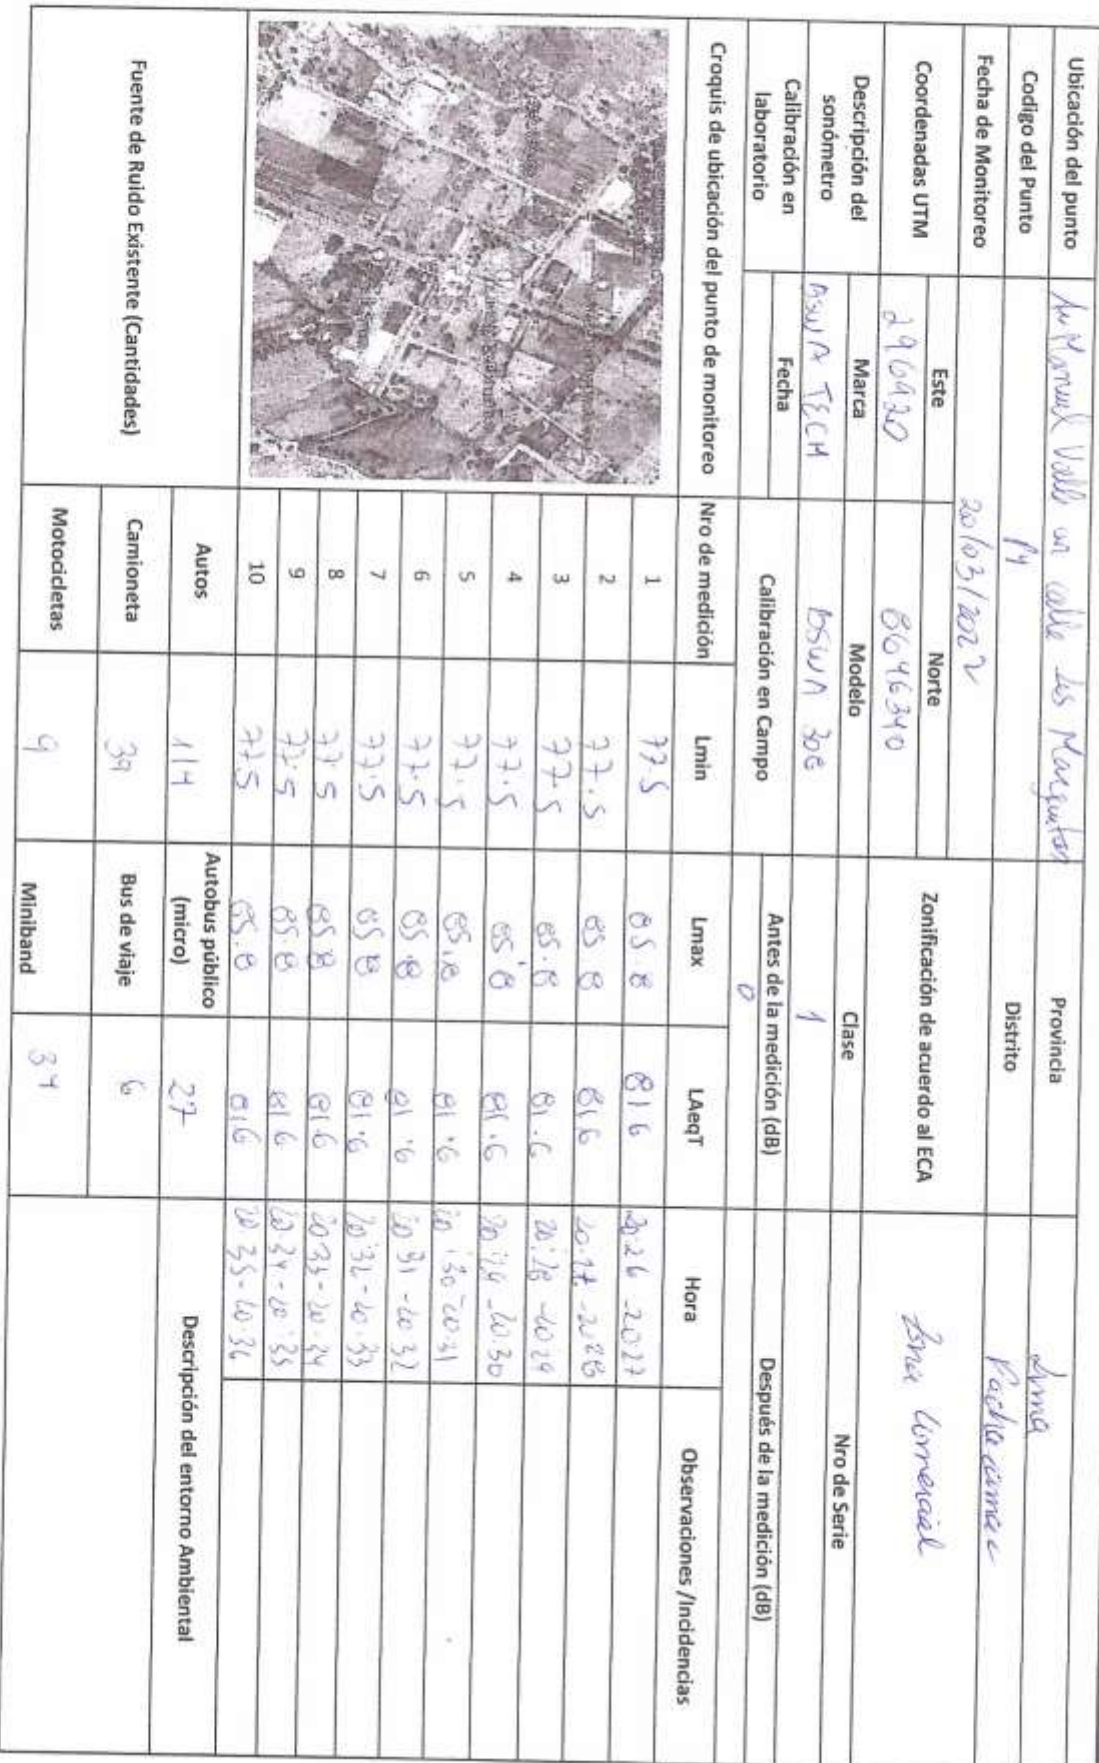 Ubicación del punto Av Manuel Valle con calle los Provincia Lima
Codigo del Punto P4 Distrito Pachacamac
Fecha de Monitoreo 20/03/2022
Coordenadas UTM Este Norte Zonificación de acuerdo al ECA Zona Comercial
296920 8646340
Descripción del sonómetro Marca Modelo Clase Nro de Serie
BSWA TECH BSWA 308 1
Calibración en laboratorio Fecha Calibración en Campo Antes de la medición (dB) Después de la medición (dB)
0
Croquis de ubicación del punto de monitoreo Nro de medición Lmin Lmax LAeqT Hora Observaciones /Incidencias
1 77.5 85.8 81 6 20:26 - 20:27
2 77.5 85 8 81 6 20:27 - 20 28
3 77.5 85.8 81.6 20:28 - 20 29
4 77.5 85.8 81.6 20:29 - 20:30
5 77.5 85.8 81.6 20:30 - 20 31
6 77.5 85.8 81.6 20 31 - 20 32
7 77.5 85 8 81.6 20:32 - 20:33
8 77.5 85 8 81 6 20 33 - 20:34
9 77.5 85.8 81 6 20 34 - 20:35
10 77.5 85.8 81.6 20 35 - 20 36
Fuente de Ruido Existente (Cantidades) Autos 114 Autobus público (micro) 27 Descripción del entorno Ambiental
Camioneta 39 Bus de viaje 6
Motocicletas 9 Miniband 34